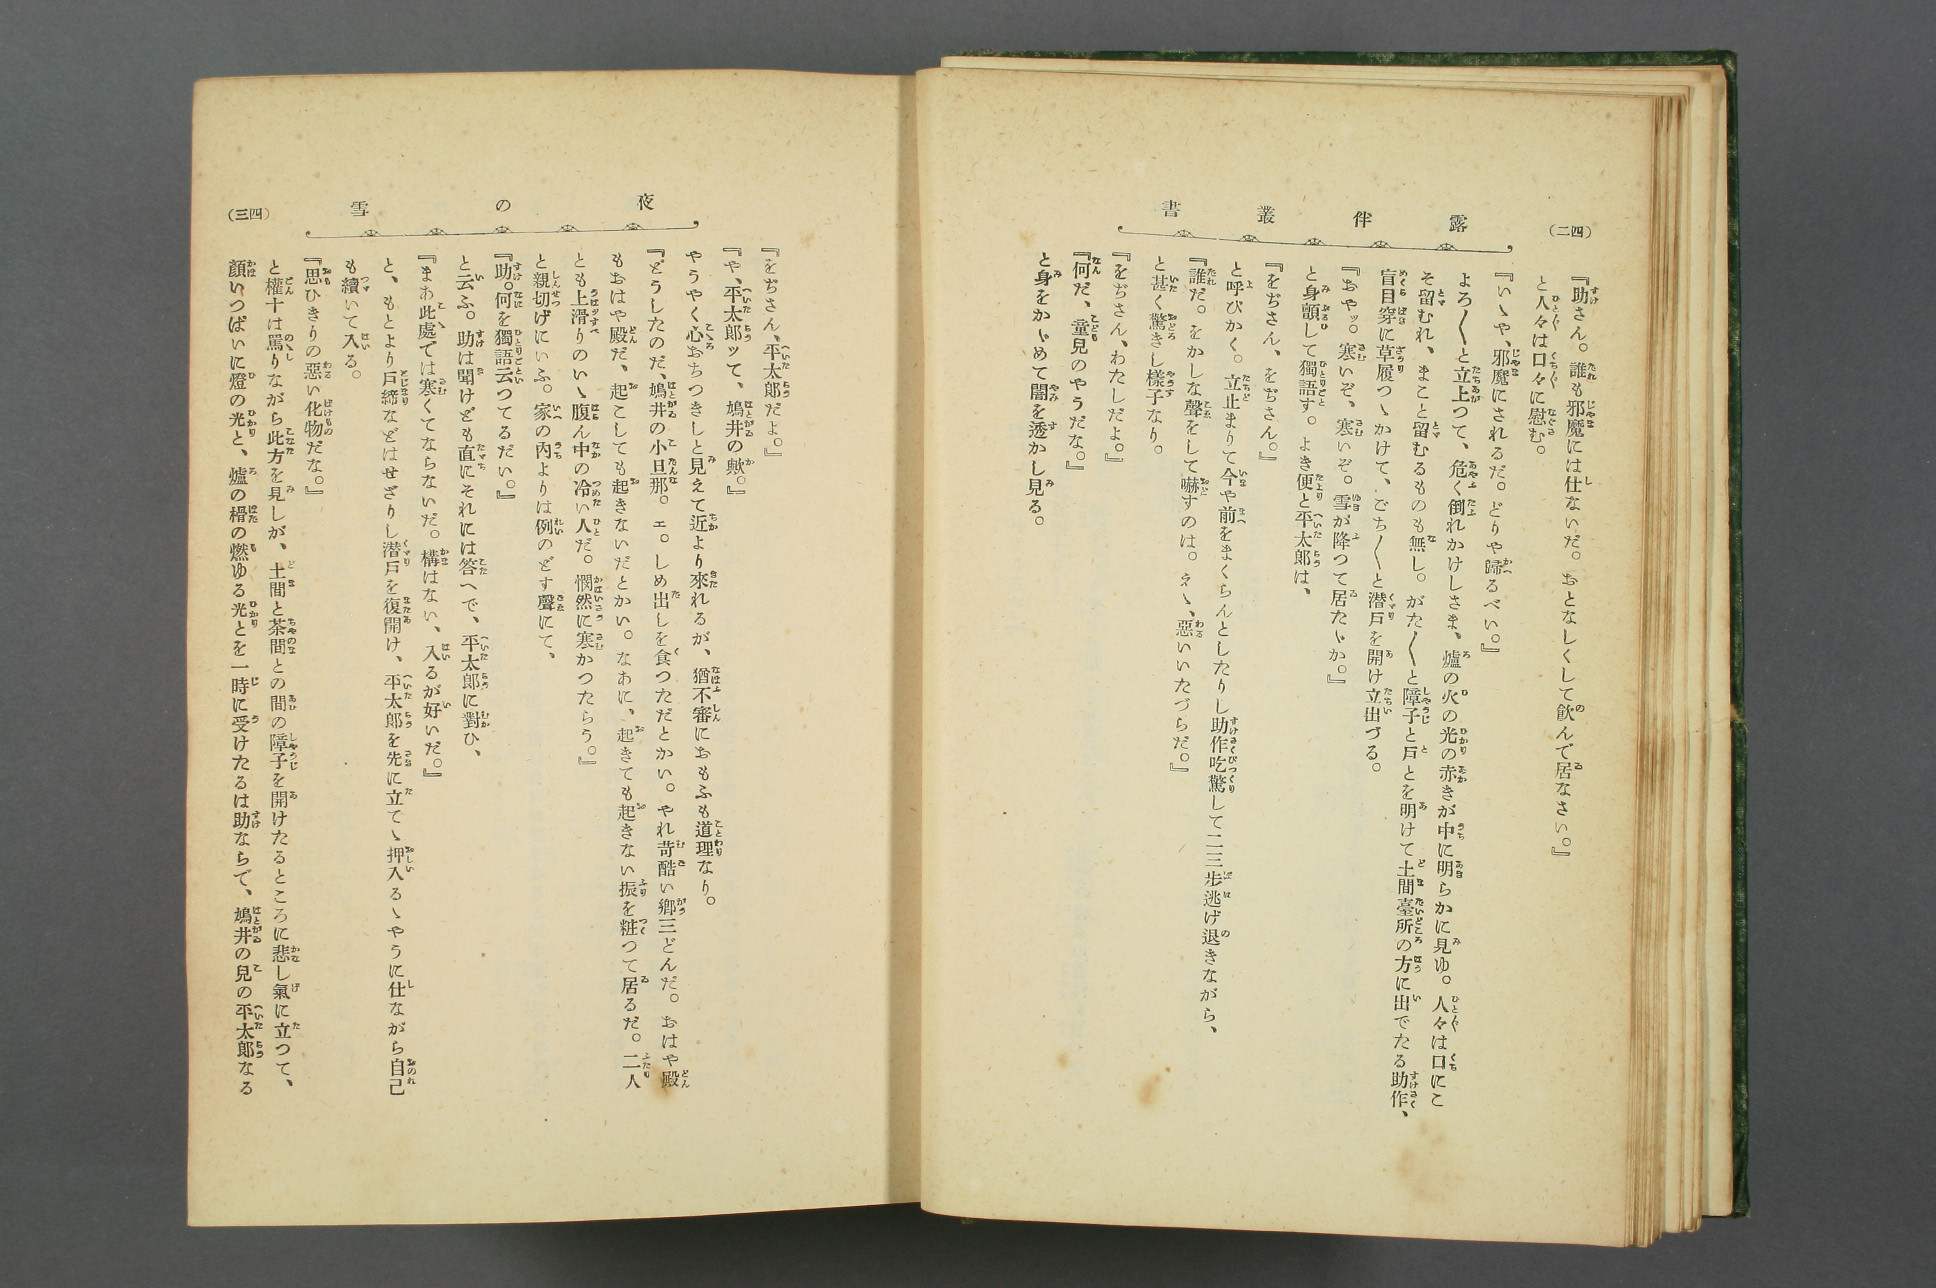 (四二)
露伴叢書
『助さん。誰も邪魔には仕ないだ。おとなしくして飮んで居なさい。』
と人々は口々に慰む。
『いゝや、邪魔にされるだ。どりや歸るべい。』
よろ〳〵と立上つて、危く倒れかけしさま、爐の火の光の赤きが中に明らかに見ゆ。人々は口にこ
そ留むれ、まこと留むるものも無し。がた〳〵と障子と戸とを明けて土間臺所の方に出でたる助作、
盲目穿に草履つゝかけて、ごち〳〵と潜戸を開け立出づる。
『おやッ。寒いぞ、寒いぞ。雪が降つて居たゝか。』
と身顫して獨語す。よき便と平太郎は、
『をぢさん、をぢさん。』
と呼びかく。立止まりて今や前をまくらんとしたりし助作吃驚して二三步逃げ退きながら、
『誰だ。をかしな聲をして嚇すのは。えゝ、惡いいたづらだ。』
と甚く驚きし樣子なり。
『をぢさん、わたしだよ。』
『何だ、童兒のやうだな。』
と身をかゞめて闇を透かし見る。
夜の雪
(四三)
『をぢさん、平太郎だよ。』
『や、平太郎ッて、鳩井の歟。』
やうやく心おちつきしと見えて近より來れるが、猶不審におもふも道理なり。
『どうしたのだ、鳩井の小旦那。エ。しめ出しを食つただとかい。やれ苛酷い鄕三どんだ。おはや殿
もおはや殿だ、起こしても起きないだとかい。なあに、起きても起きない振を粧つて居るだ。二人
とも上滑りのいゝ腹ん中の冷い人だ。憫然に寒かつたらう。』
と親切げにいふ。家の内よりは例のどす聲にて、
『助。何を獨語云つてるだい。』
と云ふ。助は聞けども直にそれには答へで、平太郎に對ひ、
『まあ此處では寒くてならないだ。構はない、入るが好いだ。』
と、もとより戸締などはせざりし潜戸を復開け、平太郎を先に立てゝ押入るゝやうに仕ながら自己
も續いて入る。
『思ひきりの惡い化物だな。』
と權十は罵りながら此方を見しが、土間と茶間との間の障子を開けたるところに悲し氣に立つて、
顏いつぱいに燈の光と、爐の榾の燃ゆる光とを一時に受けたるは助ならで、鳩井の兒の平太郎なる